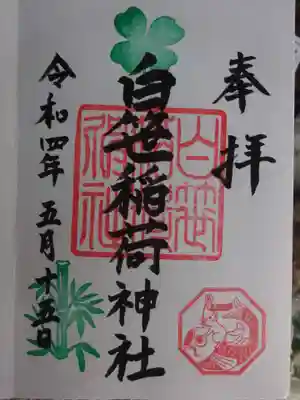 奉拝
白笹稲荷神社
令和四年 五月十五日
白笹稲荷神社